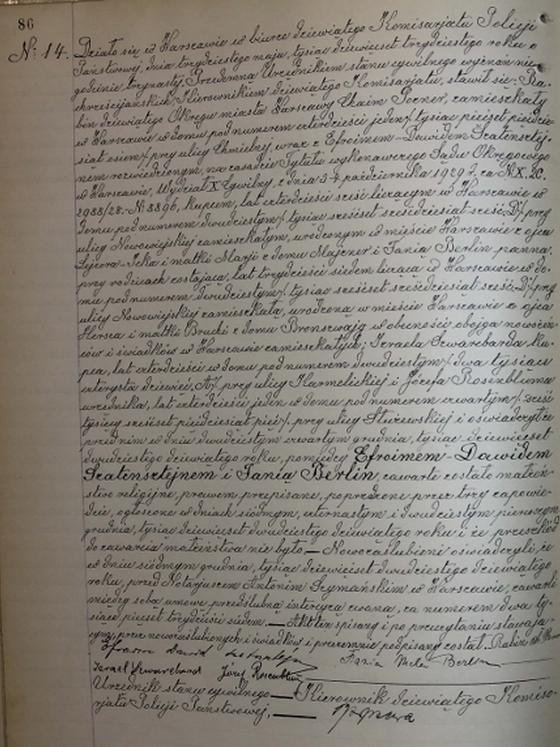 86
№ 14. Działo się w Warszawie w biurze dziewiątego Komisarjatu Policji
Państwowej, dnia trzydziestego maja, tysiąc dziewięćset trzydziestego roku o
godzinie trzynastej. Przedemną Urzędnikiem stanu cywilnego wyznań nie-
chrześcijańskich Kierownikiem dziewiątego Komisarjatu, stawił się: Ra-
bin dziewiątego Okręgu miasta Warszawy Chaim Posner, zamieszkały
w Warszawie w domu pod numerem czterdzieści jeden/tysiąc pięćset pięćdzie-
siąt osiem/ przy ulicy Chmielnej, wraz z Efroimem-Dawidem Szatensztej-
nem rozwiedzionym, na zasadzie Tytułu wykonawczego Sądu Okręgowego
w Warszawie, Wydział X Cywilny, z dnia października 1929 r. za № X. 2C.
2988/28. № 8896, kupcem, lat czterdzieści sześć liczącym w Warszawie w
domu pod numerem dwudziestym/tysiąc sześćset sześćdziesiąt sześć D/ przy
ulicy Nowowiejskiej zamieszkałym, urodzonym w mieście Warszawie z ojca
Lejzora-Icka i matki Marji z domu Majzner i Fania Berlin panną,
przy rodzicach zostającą, lat trzydzieści siedem liczącą w Warszawie w do-
mu pod numerem dwudziestym/tysiąc sześćset sześćdziesiąt sześć D/ przy
ulicy Nowowiejskiej zamieszkałą, urodzoną w mieście Warszawie z ojca
Hersza i matki Bruchi z domu Bronszwajg w obecności obojga nowożeń-
ców i świadków w Warszawie zamieszkałych; Izraela Szwarcbarda ku-
pca, lat czterdzieści w domu pod numerem dwudziestym/dwa tysiące
czterysta dziewięć A/ przy ulicy Karmelickiej i Józefa Rozenbluma
urzędnika, lat czterdzieści jeden w domu pod numerem czwartym/sześć
tysięcy sześćset pięćdziesiąt pięć/ przy ulicy Służewskiej i oświadczył że
przed nim w dniu dwudziestym czwartym grudnia, tysiąc dziewięćset
dwudziestego dziewiątego roku, pomiędzy Efroimem-Dawidem
Szatensztejnem i Fanią Berlin, zawarte zostało małżeń-
stwo religijne, prawem przepisane, poprzedzone przez trzy zapowie-
dzie, ogłoszone w dniach siódmym, czternastym i dwudziestym pierwszym
grudnia, tysiąc dziewięćset dwudziestego dziewiątego roku i że przeszkód
do zawarcia małżeństwa nie było. — Nowozaślubieni oświadczyli, że
w dniu siódmym grudnia, tysiąc dziewięćset dwudziestego dziewiątego
roku, przed Notarjuszem Antonim Szymańskim w Warszawie, zawarli
między sobą umowę przedślubną intercyzą zwaną, za numerem dwa ty-
siące pięćset trzydzieści siedem. — Akt ten spisany i po przeczytaniu stawają-
cym, przez nowozaślubionych i świadków i przezemnie podpisany został. Rabin
Efroim Dawid
Izrael Szwarcbard Józef Rosenblum
Urzędnik stanu cywilnego — Kierownik dziewiątego Komisa-
rjatu Policji Państwowej. —